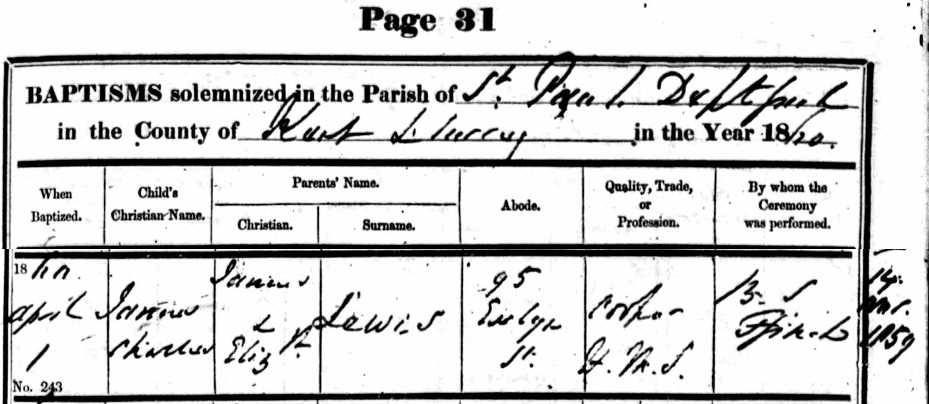 Page 31
BAPTISMS solemnized in the Parish of St. Paul Deptford
in the County of Kent & Surrey in the Year 1860.
When Baptized. Child's Christian Name. Parents' Name. Christian. Surname. Abode. Quality, Trade, or Profession. By whom the Ceremony was performed.
1860 April 1 James Charles James & Elizth Lewis 95 Evelyn St. H.M.S. B. S. Ffinch
1859
No. 243